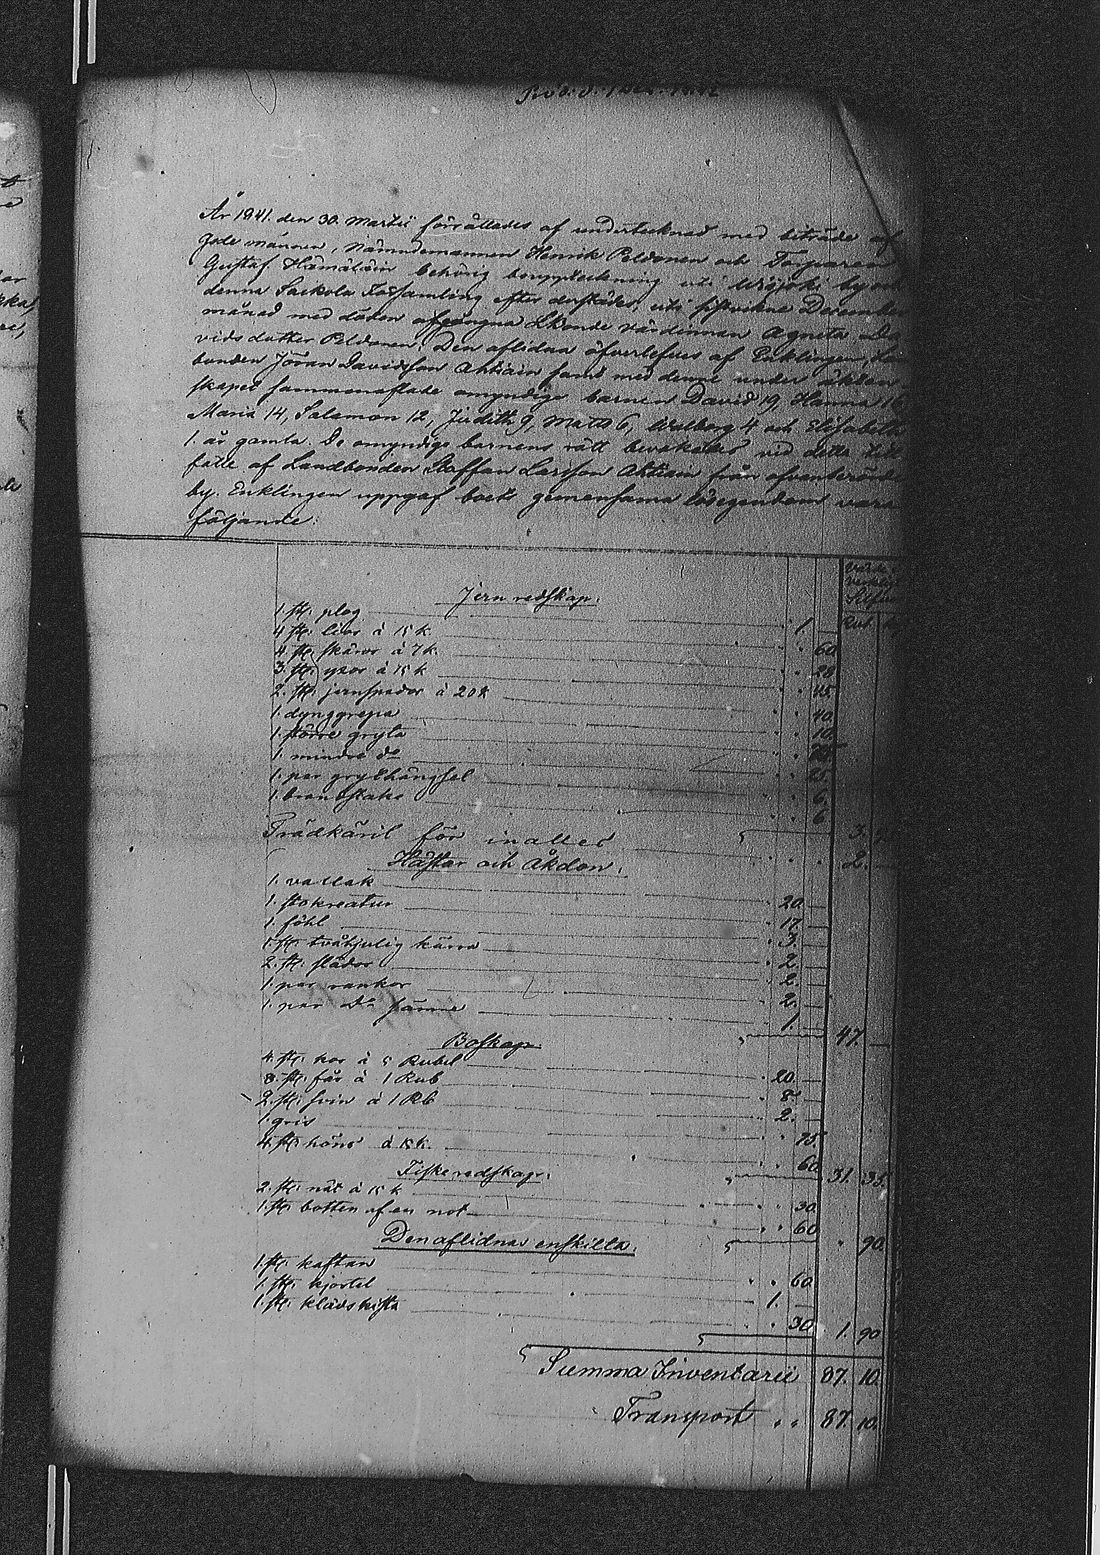 År 1841. den 30. Martii förrättades af undertecknad med biträde af
gode männen, Nämndemannen Henrik Peldonen och Torparen
Gustaf Hämäläin behörig bouppteckning uti Wisjoki by och
denna Sackola Församling efter derstädes, uti sistvekne December
månad med döden afgångna Bonde värdinnan Agneta Da
vidsdotter Peldonen. Den aflidna öfverlefves af Enklingen,
bonden Jöran Davidsson Ahtiain samt med denne under äkten
skapet sammanaflade omyndige barnen David 19, Hanna 16
Maria 14, Salamon 12, Judith 9, Matts 6, Walborg 4 och Elisabeth
1. år gamla. De omyndige barnens rätt bevakades vid detta till
fälle af Landbonden Staffan Larsson Ahtiain från ofvanberörde
by. Enklingen uppgaf boets gemensama lösegendom vara
följande:
Jern redskap.
1. st. plog 1.
4 st. liar à 15 k. 60
4 st. skäror à 7 k. 28
3. st. yxor à 15 k 45
2. st. jernspador à 20 k 40
1. dynggrepa 10
1. större gryta
1. mindre do 25
1. par grythängsel 6
1. brandstake 6
3.
Trädkäril för inalles 2.
Hästar och Åkdon.
1. vallak 20. —
1. stokreatur 17. —
1. föhl 3. —
1. st. tvåhjulig kärra 2. —
2. st. slädor 2. —
1. par rankor 2. —
1. par do sämre 1. —
47. —
Boskap.
4. st. kor à 5 Rubel 20. —
8. st. får à 1 Rub 8. —
2. st. svin à 1 Rb 2. —
1. gris 75.
4. st. höns à 15 k. 60
31. 35.
Fiskeredskap.
2. st. nät à 15 k 30
1. st. botten af en not 60
90.
Den aflidnas enskilta.
1. st. kaftan 60
1. st. kjortel 1. —
1. st. klädskista 30
1. 90
Summa Inventarii 87. 10.
Transport 87. 10.